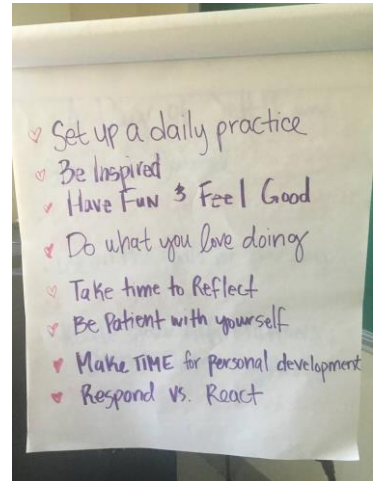 ♡ Set up a daily practice
♡ Be Inspired
♥ Have FuN & Feel Good
♥ Do what you love doing
♡ Take time to Reflect
♥ Be Patient with yourself
♥ Make TIME for personal development
♥ Respond vs. React